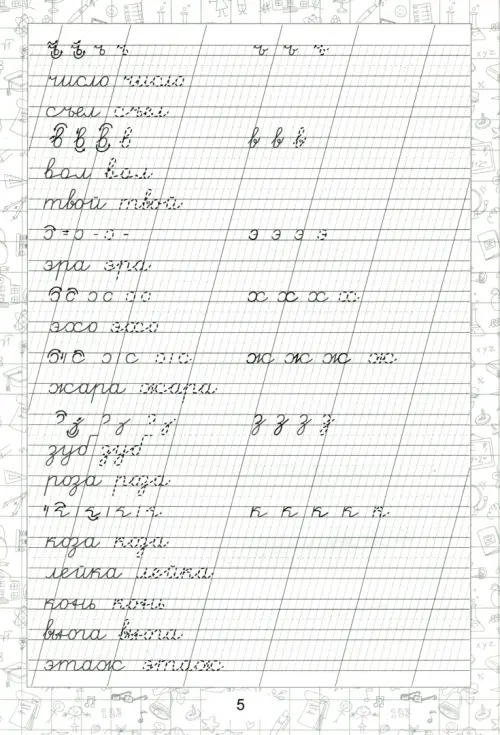 ъ ъ ъ ъ ъ ъ ъ
число число
съел съел
в в в в в в в
вол вол
твой твой
э э э э
эра эра
х х х х
эхо эхо
ж ж ж ж
жара жара
з з з з
зуб зуб
роза роза
к к к к к
коза коза
лейка лейка
конь конь
вьюга вьюга
этаж этаж
5